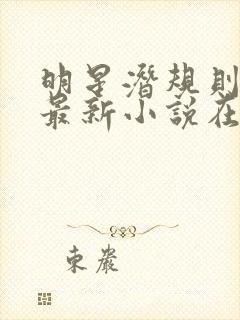 明星潛規則
最新小說在
東嚴